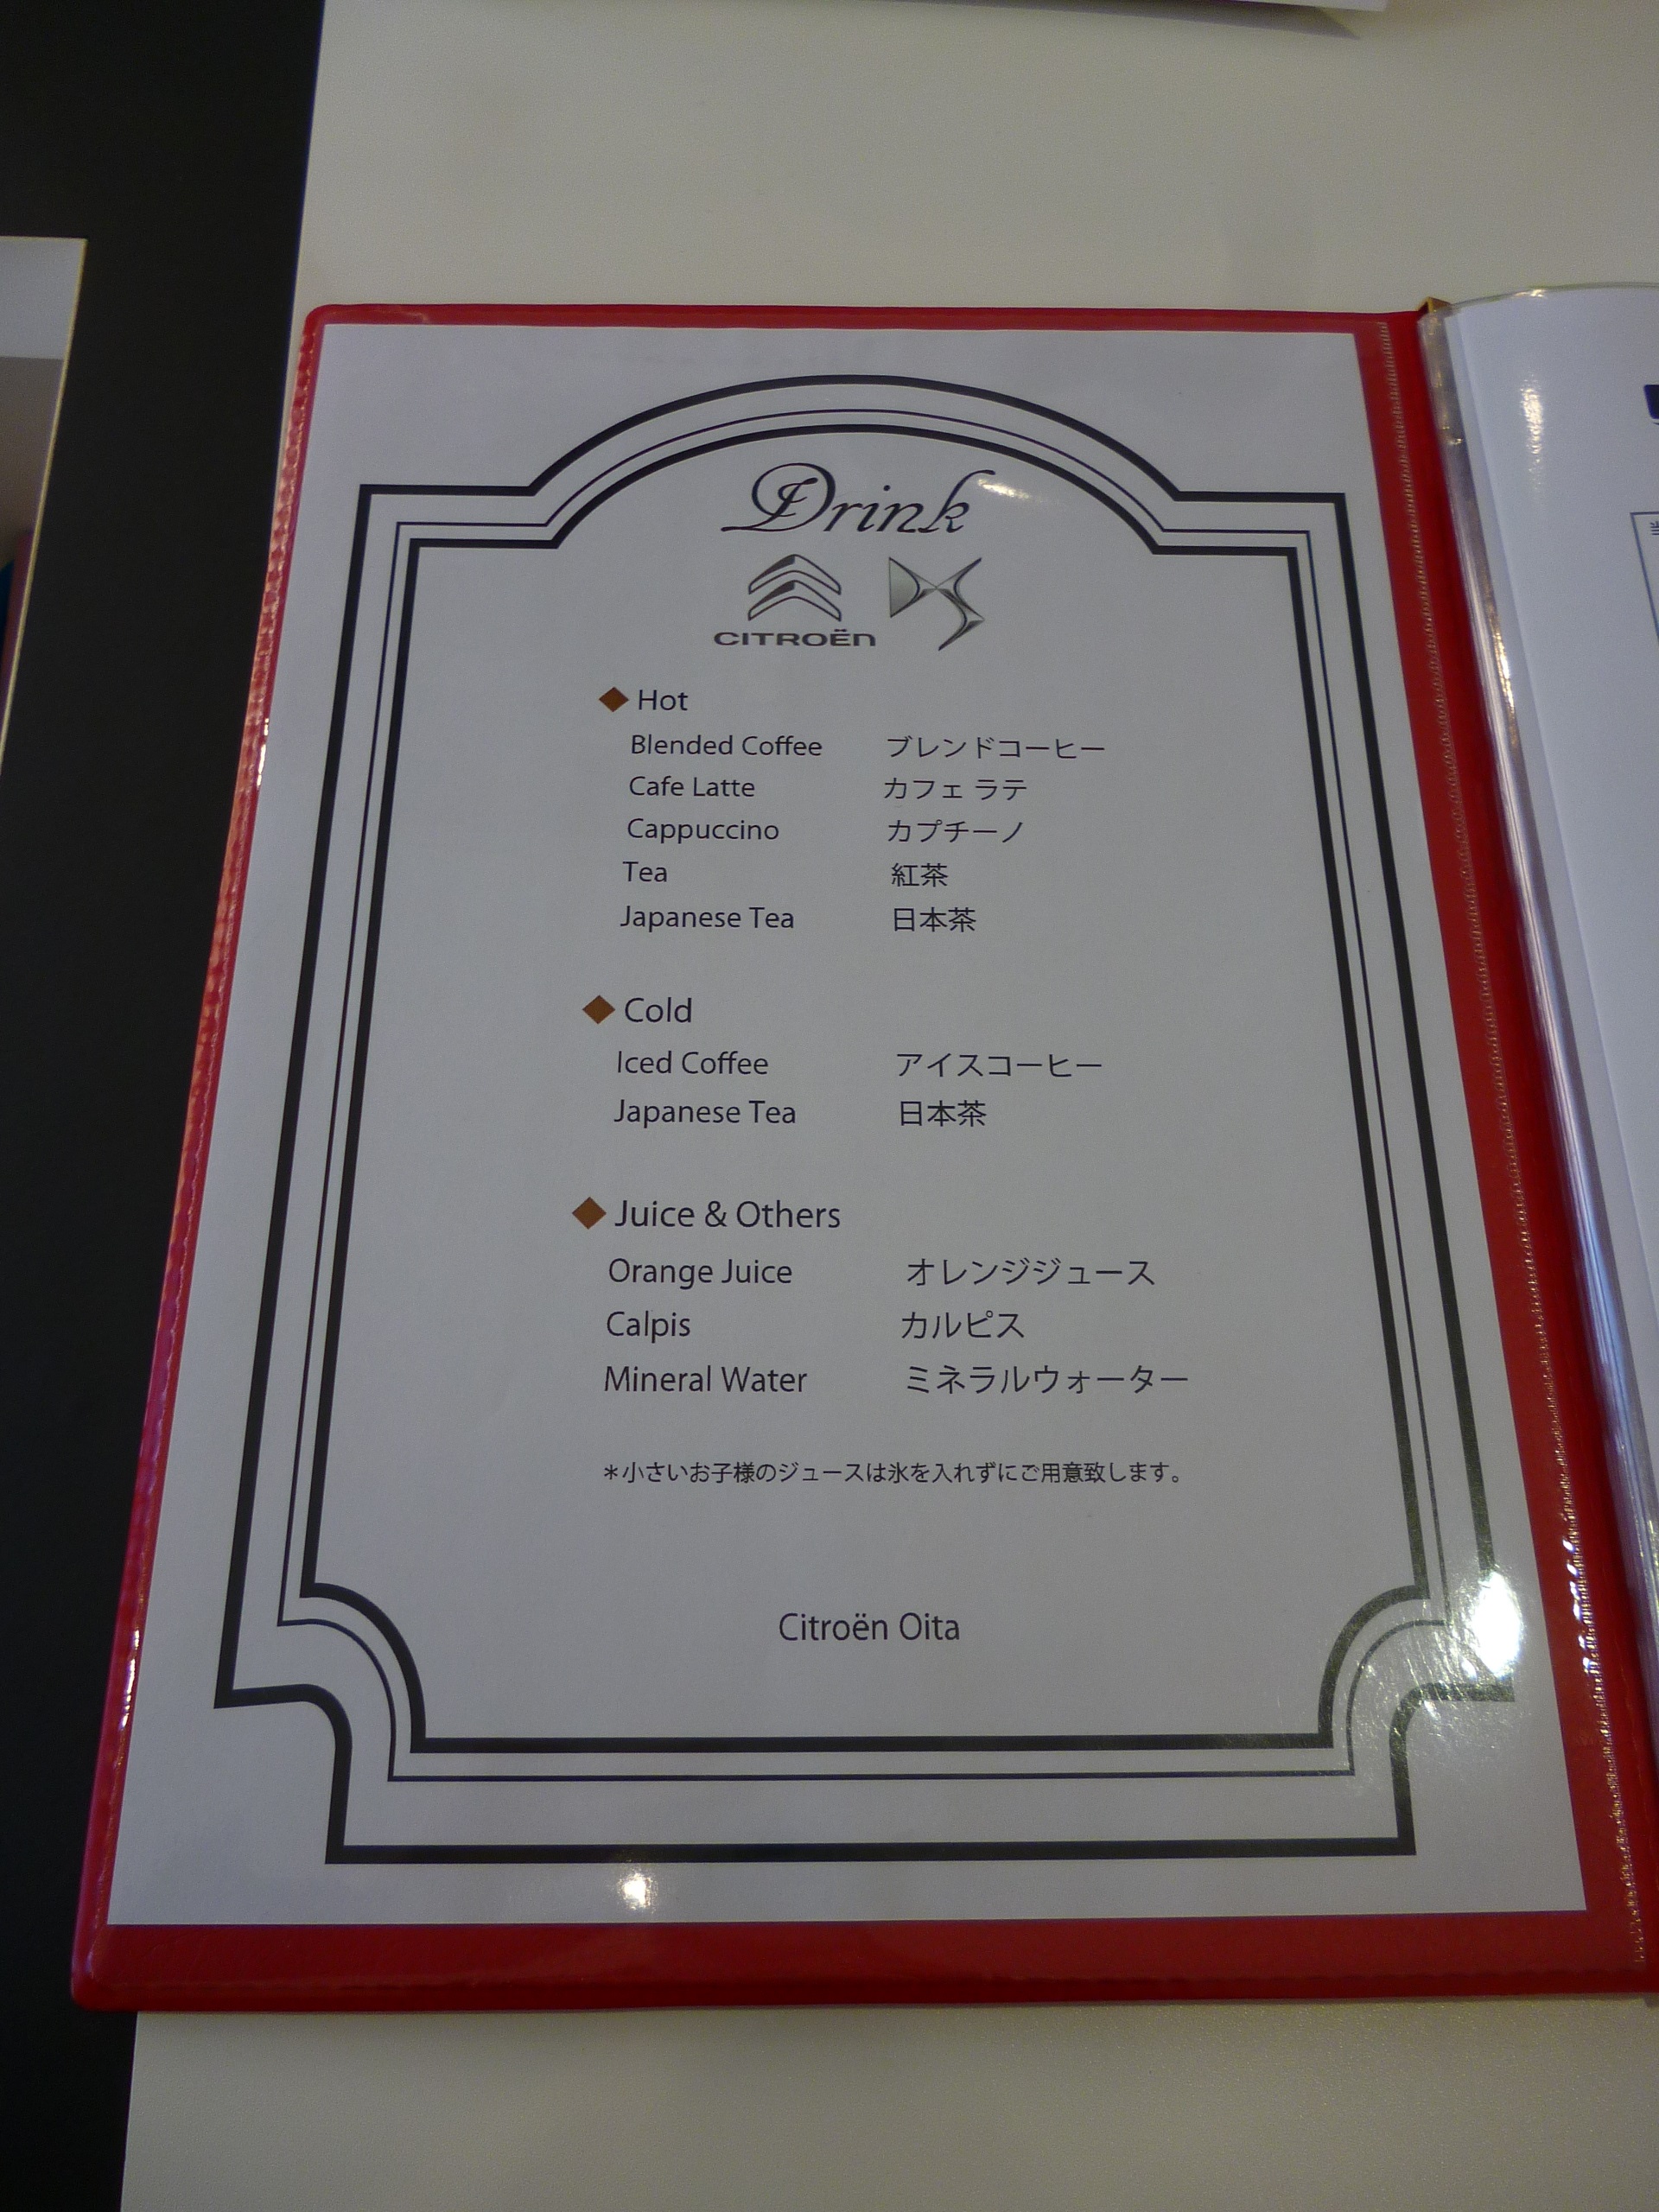 Drink
CITROËN DS
Hot
Blended Coffee ブレンドコーヒー
Cafe Latte カフェ ラテ
Cappuccino カプチーノ
Tea 紅茶
Japanese Tea 日本茶
Cold
Iced Coffee アイスコーヒー
Japanese Tea 日本茶
Juice & Others
Orange Juice オレンジジュース
Calpis カルピス
Mineral Water ミネラルウォーター
*小さいお子様のジュースは氷を入れずにご用意致します。
Citroën Oita